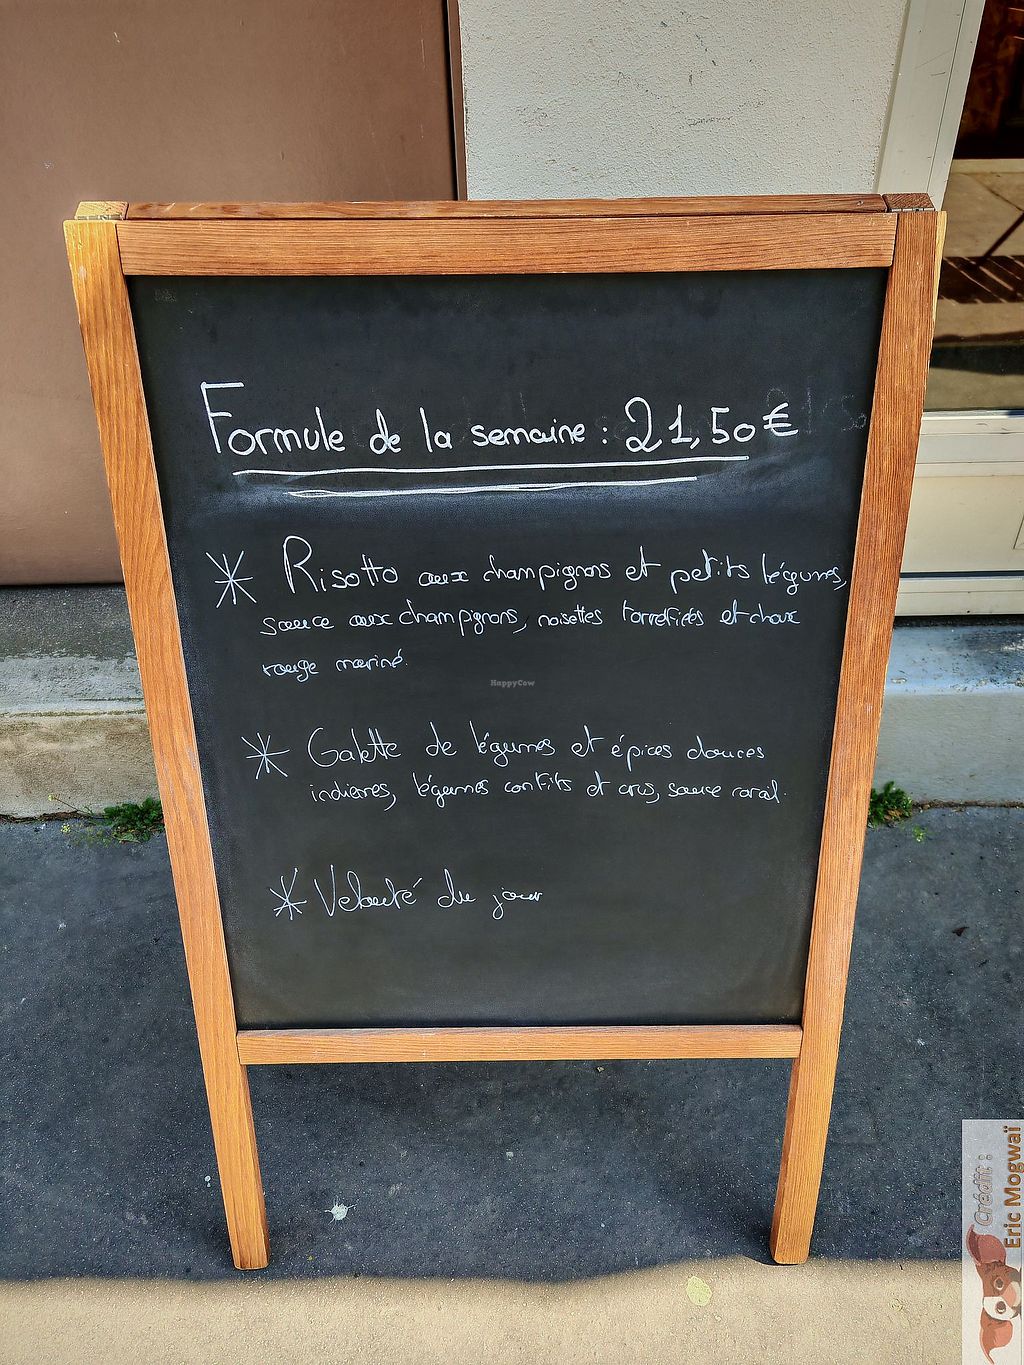 Formule de la semaine : 21,50 €
* Risotto aux champignons et petits légumes,
sauce aux champignons, noisettes torréfiées et choux
rouge mariné.
* Galette de légumes et épices douces
indiennes, légumes confits et crus, sauce
* Velouté du jour
HappyCow
Crédit :
Eric Mogwaï